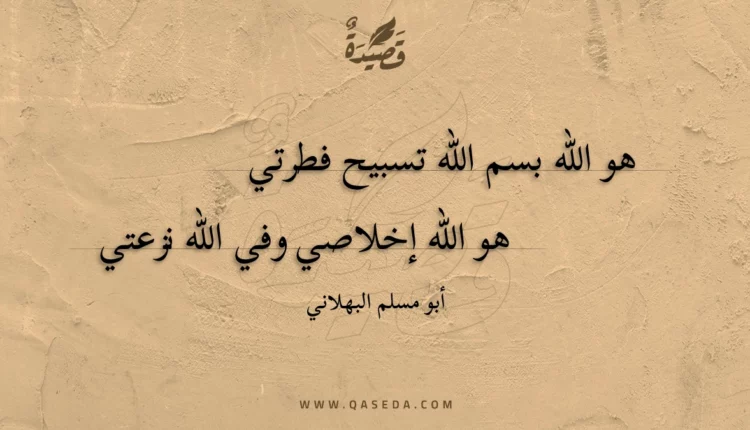 قَصِيْدَةٌ
هو الله بسم الله تسبيح فطرتي
هو الله إخلاصي وفي الله نزعتي
أبو مسلم البهلاني
WWW.QASEDA.COM